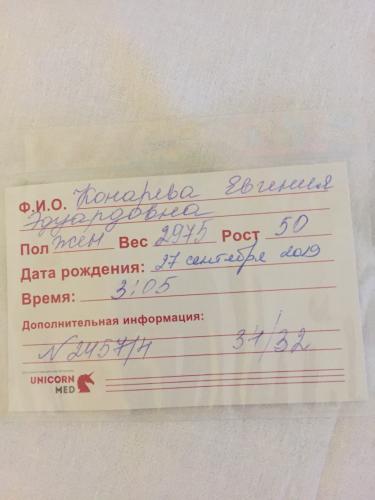 Ф.И.О. Конарева Евгения
Эдуардовна
Пол жен Вес 2975 Рост 50
Дата рождения: 27 сентября 2019
Время: 3:05
Дополнительная информация:
N 2457/4 31/32
UNICORN
MED